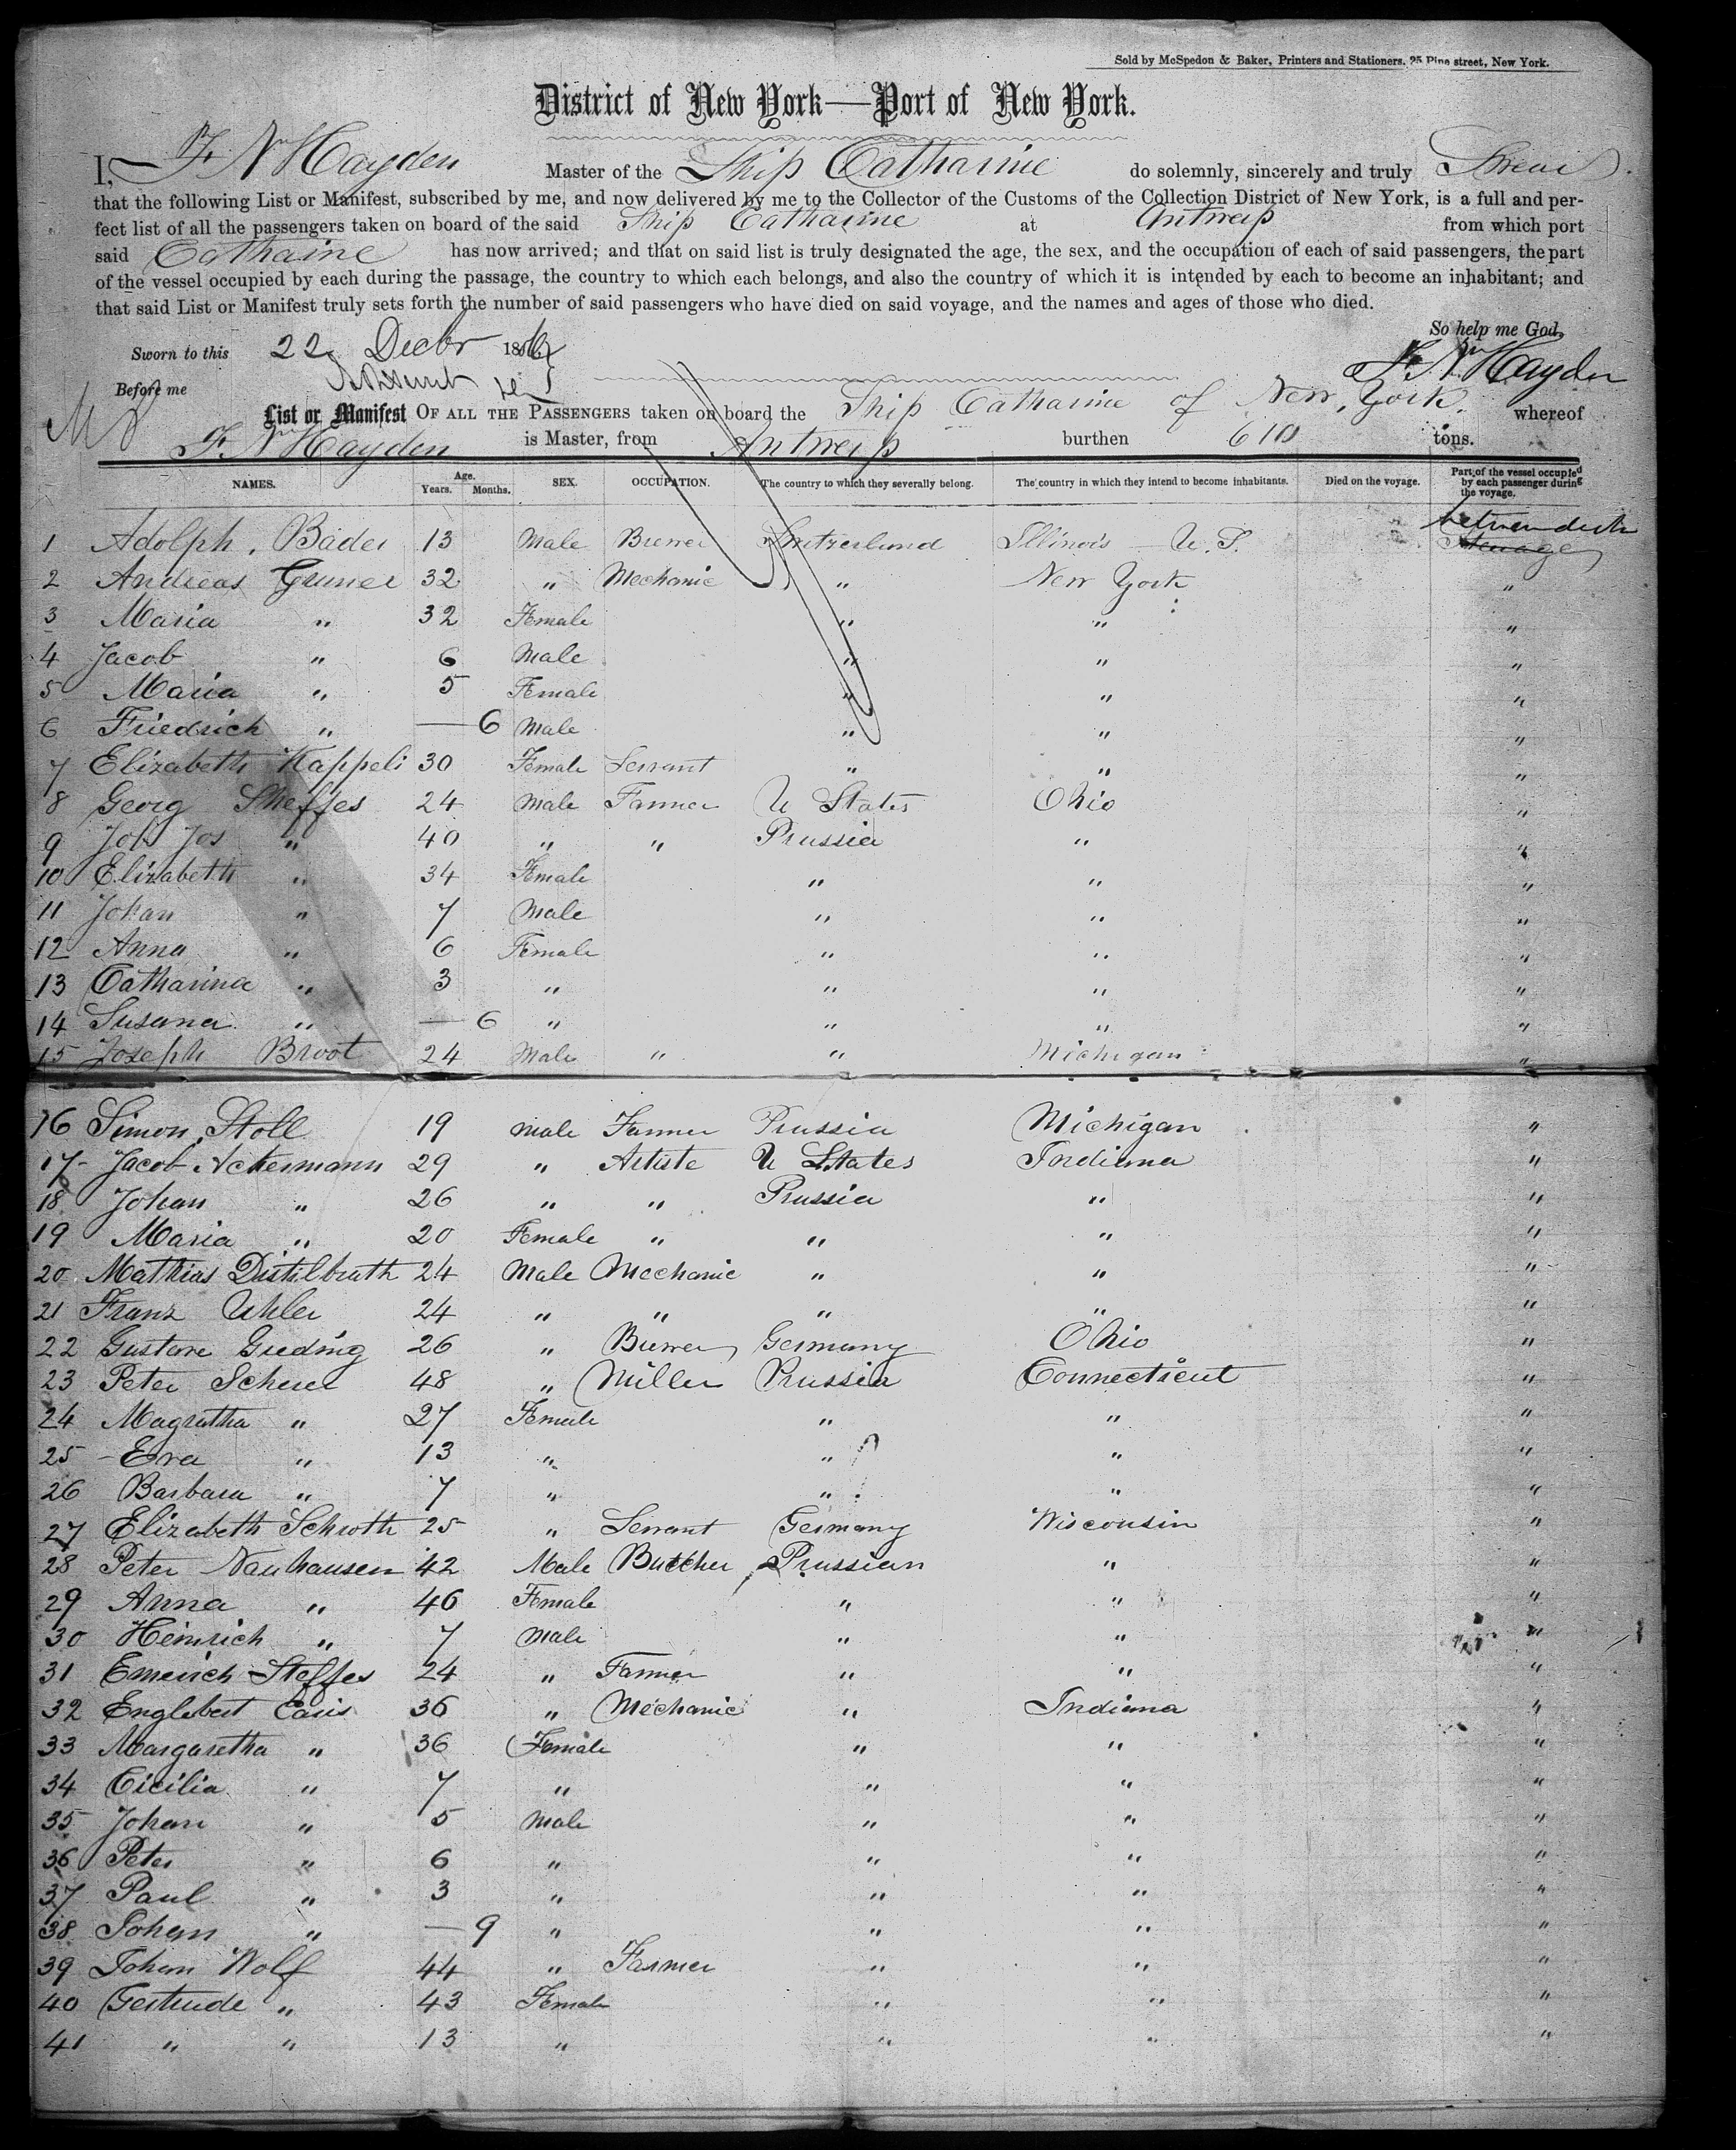 Sold by McSpedon & Baker, Printers and Stationers, 25 Pine street, New York.
District of New York—Port of New York.
I, F N Hayden Master of the Ship Catharine do solemnly, sincerely and truly Swear
that the following List or Manifest, subscribed by me, and now delivered by me to the Collector of the Customs of the Collection District of New York, is a full and per-
fect list of all the passengers taken on board of the said Ship Catharine at Antwerp from which port
said Catharine has now arrived; and that on said list is truly designated the age, the sex, and the occupation of each of said passengers, the part
of the vessel occupied by each during the passage, the country to which each belongs, and also the country of which it is intended by each to become an inhabitant; and
that said List or Manifest truly sets forth the number of said passengers who have died on said voyage, and the names and ages of those who died.
So help me God,
Sworn to this 22 Decbr 185
F. N Hayden
Before me
List or Manifest OF ALL THE PASSENGERS taken on board the Ship Catharine of New York. whereof
F. N Hayden is Master, from Antwerp burthen 610 tons.
NAMES. Age. Years. Months. SEX. OCCUPATION. The country to which they severally belong. The country in which they intend to become inhabitants. Died on the voyage. Part of the vessel occupied by each passenger during the voyage.
between decks
1 Adolph, Bader 13 Male Brewer Switzerland Illinois — U. S. Steerage
2 Andreas Gruner 32 " Mechanic " New York "
3 Maria " 32 Female " " "
4 Jacob " 6 Male " " "
5 Maria " 5 Female " " "
6 Friedrich " — 6 Male " " "
7 Elizabeth Kappeli 30 Female Servant " " "
8 Georg Sheffes 24 Male Farmer U States Ohio "
9 Joh Jos " 40 " " Prussia " "
10 Elizabeth " 34 Female " " "
11 Johan " 7 Male " " "
12 Anna " 6 Female " " "
13 Catharina " 3 " " " "
14 Susana " — 6 " " " "
15 Joseph Broot 24 Male " " Michigan "
16 Simon, Stoll 19 male Farmer Prussia Michigan "
17 Jacob Ackermann 29 " Artiste U States Indiana "
18 Johan " 26 " " Prussia " "
19 Maria " 20 Female " " " "
20 Mathias Distilbrath 24 Male Mechanic " " "
21 Franz Uhler 24 " " " " "
22 Gustave Greding 26 " Brewer Germany Ohio "
23 Peter Scherer 48 " Miller Prussia Connecticut "
24 Magratha " 27 Female " " "
25 Eva " 13 " " " "
26 Barbara " 7 " " " "
27 Elizabeth Schroth 25 " Servant Germany Wisconsin "
28 Peter Nauhausen 42 Male Butcher Prussian " "
29 Anna " 46 Female " " "
30 Heinrich " 7 Male " " "
31 Emerich Steffes 24 " Farmer " " "
32 Englebert Caris 36 " Mechanic " Indiana "
33 Margaretha " 36 Female " " "
34 Cicilia " 7 " " " "
35 Johan " 5 Male " " "
36 Peter " 6 " " " "
37 Paul " 3 " " " "
38 Johan " — 9 " " " "
39 Johan Wolf 44 " Farmer " " "
40 Gertrude " 43 Female " " "
41 " " 13 " " " "